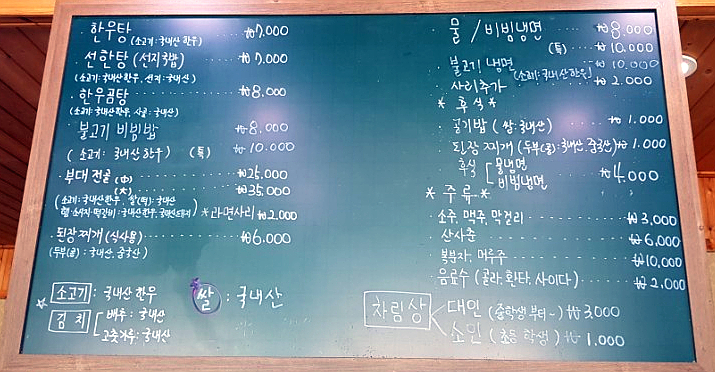 · 한우탕 ₩7,000
(소고기:국내산 한우)
· 선한탕 (선지국밥) ₩7,000
(소고기:국내산한우, 선지:국내산)
· 한우곰탕 ₩8,000
(소고기:국내산한우, 사골:국내산)
불고기 비빔밥 ₩8,000
( 소고기: 국내산 한우 ) (특) ₩10,000
· 부대 전골 (中) ₩25,000
(大) ₩35,000
(소고기:국내산한우,
*라면사리 ₩2,000
· 된장찌개 (식사용) ₩6,000
(두부(콩):국내산, 중국산)
☆ 소고기 : 국내산 한우
김치 배추 : 국내산
고춧가루: 국내산
쌀 : 국내산
물 / 비빔냉면 ₩8,000
(특) ₩10,000
불고기 냉면 (소고기:국내산한우) ₩10,000
사리추가 ₩2,000
* 후식 *
공기밥 (쌀:국내산) ₩1,000
된장찌개 (두부(콩):국내산,중국산) ₩1,000
후식 물냉면 비빔냉면 ₩4,000
* 주류 *
· 소주, 맥주, 막걸리 ₩3,000
산사춘 ₩6,000
· 복분자, 머루주 ₩10,000
음료수 (콜라, 환타, 사이다) ₩2,000
차림상 대인 (중학생부터~) ₩3,000
소인 (초등학생) ₩1,000